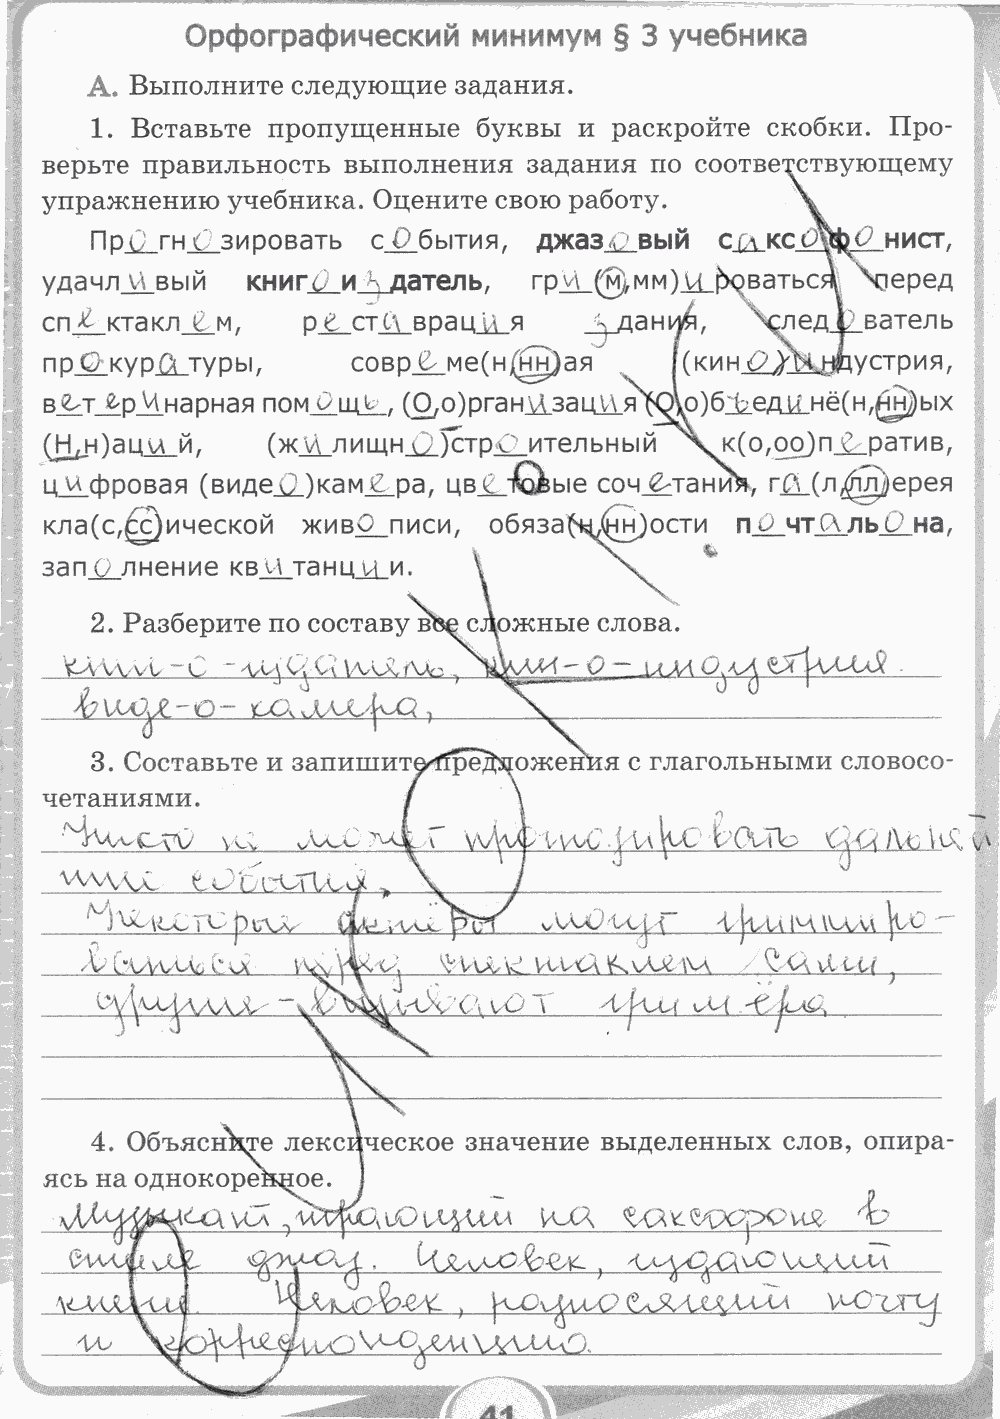 Орфографический минимум § 3 учебника
А. Выполните следующие задания.
1. Вставьте пропущенные буквы и раскройте скобки. Про-
верьте правильность выполнения задания по соответствующему
упражнению учебника. Оцените свою работу.
Пр_о_гн_о_зировать с_о_бытия, джаз_о_вый с_а_кс_о_ф_о_нист,
удачл_и_вый книг_о_и_з_датель, гр_и_(м,мм)_и_роваться перед
сп_е_ктакл_е_м, р_е_ст_а_врац_и_я _з_дания, след_о_ватель
пр_о_кур_а_туры, совр_е_ме(н,нн)ая (кин_о_)_и_ндустрия,
в_е_т_ер_и_нарная пом_о_щь_, (О,о)рган_и_зац_и_я (О,о)б_ъ_ед_и_нё(н,нн)ых
(Н,н)ац_и_й, (ж_и_лищн_о_)стр_о_ительный к(о,оо)п_е_ратив,
ц_и_фровая (виде_о_)кам_е_ра, цв_е_товые соч_е_тания, г_а_(л,лл)ерея
кла(с,сс)ической жив_о_писи, обяза(н,нн)ости п_о_чт_а_ль_о_на,
зап_о_лнение кв_и_танц_и_и.
2. Разберите по составу все сложные слова.
книг-о-издатель, кин-о-индустрия.
виде-о-камера,
3. Составьте и запишите предложения с глагольными словосо-
четаниями.
Никто не может прогнозировать дальней
шие события.
Некоторые актёры могут гримиро-
ваться перед спектаклем сами,
другие - вызывают гримёра.
4. Объясните лексическое значение выделенных слов, опира-
ясь на однокоренное.
Музыкант, играющий на саксофоне в
стиле джаз. Человек, издающий
книги. Человек, разносящий почту
и корреспонденцию.
41